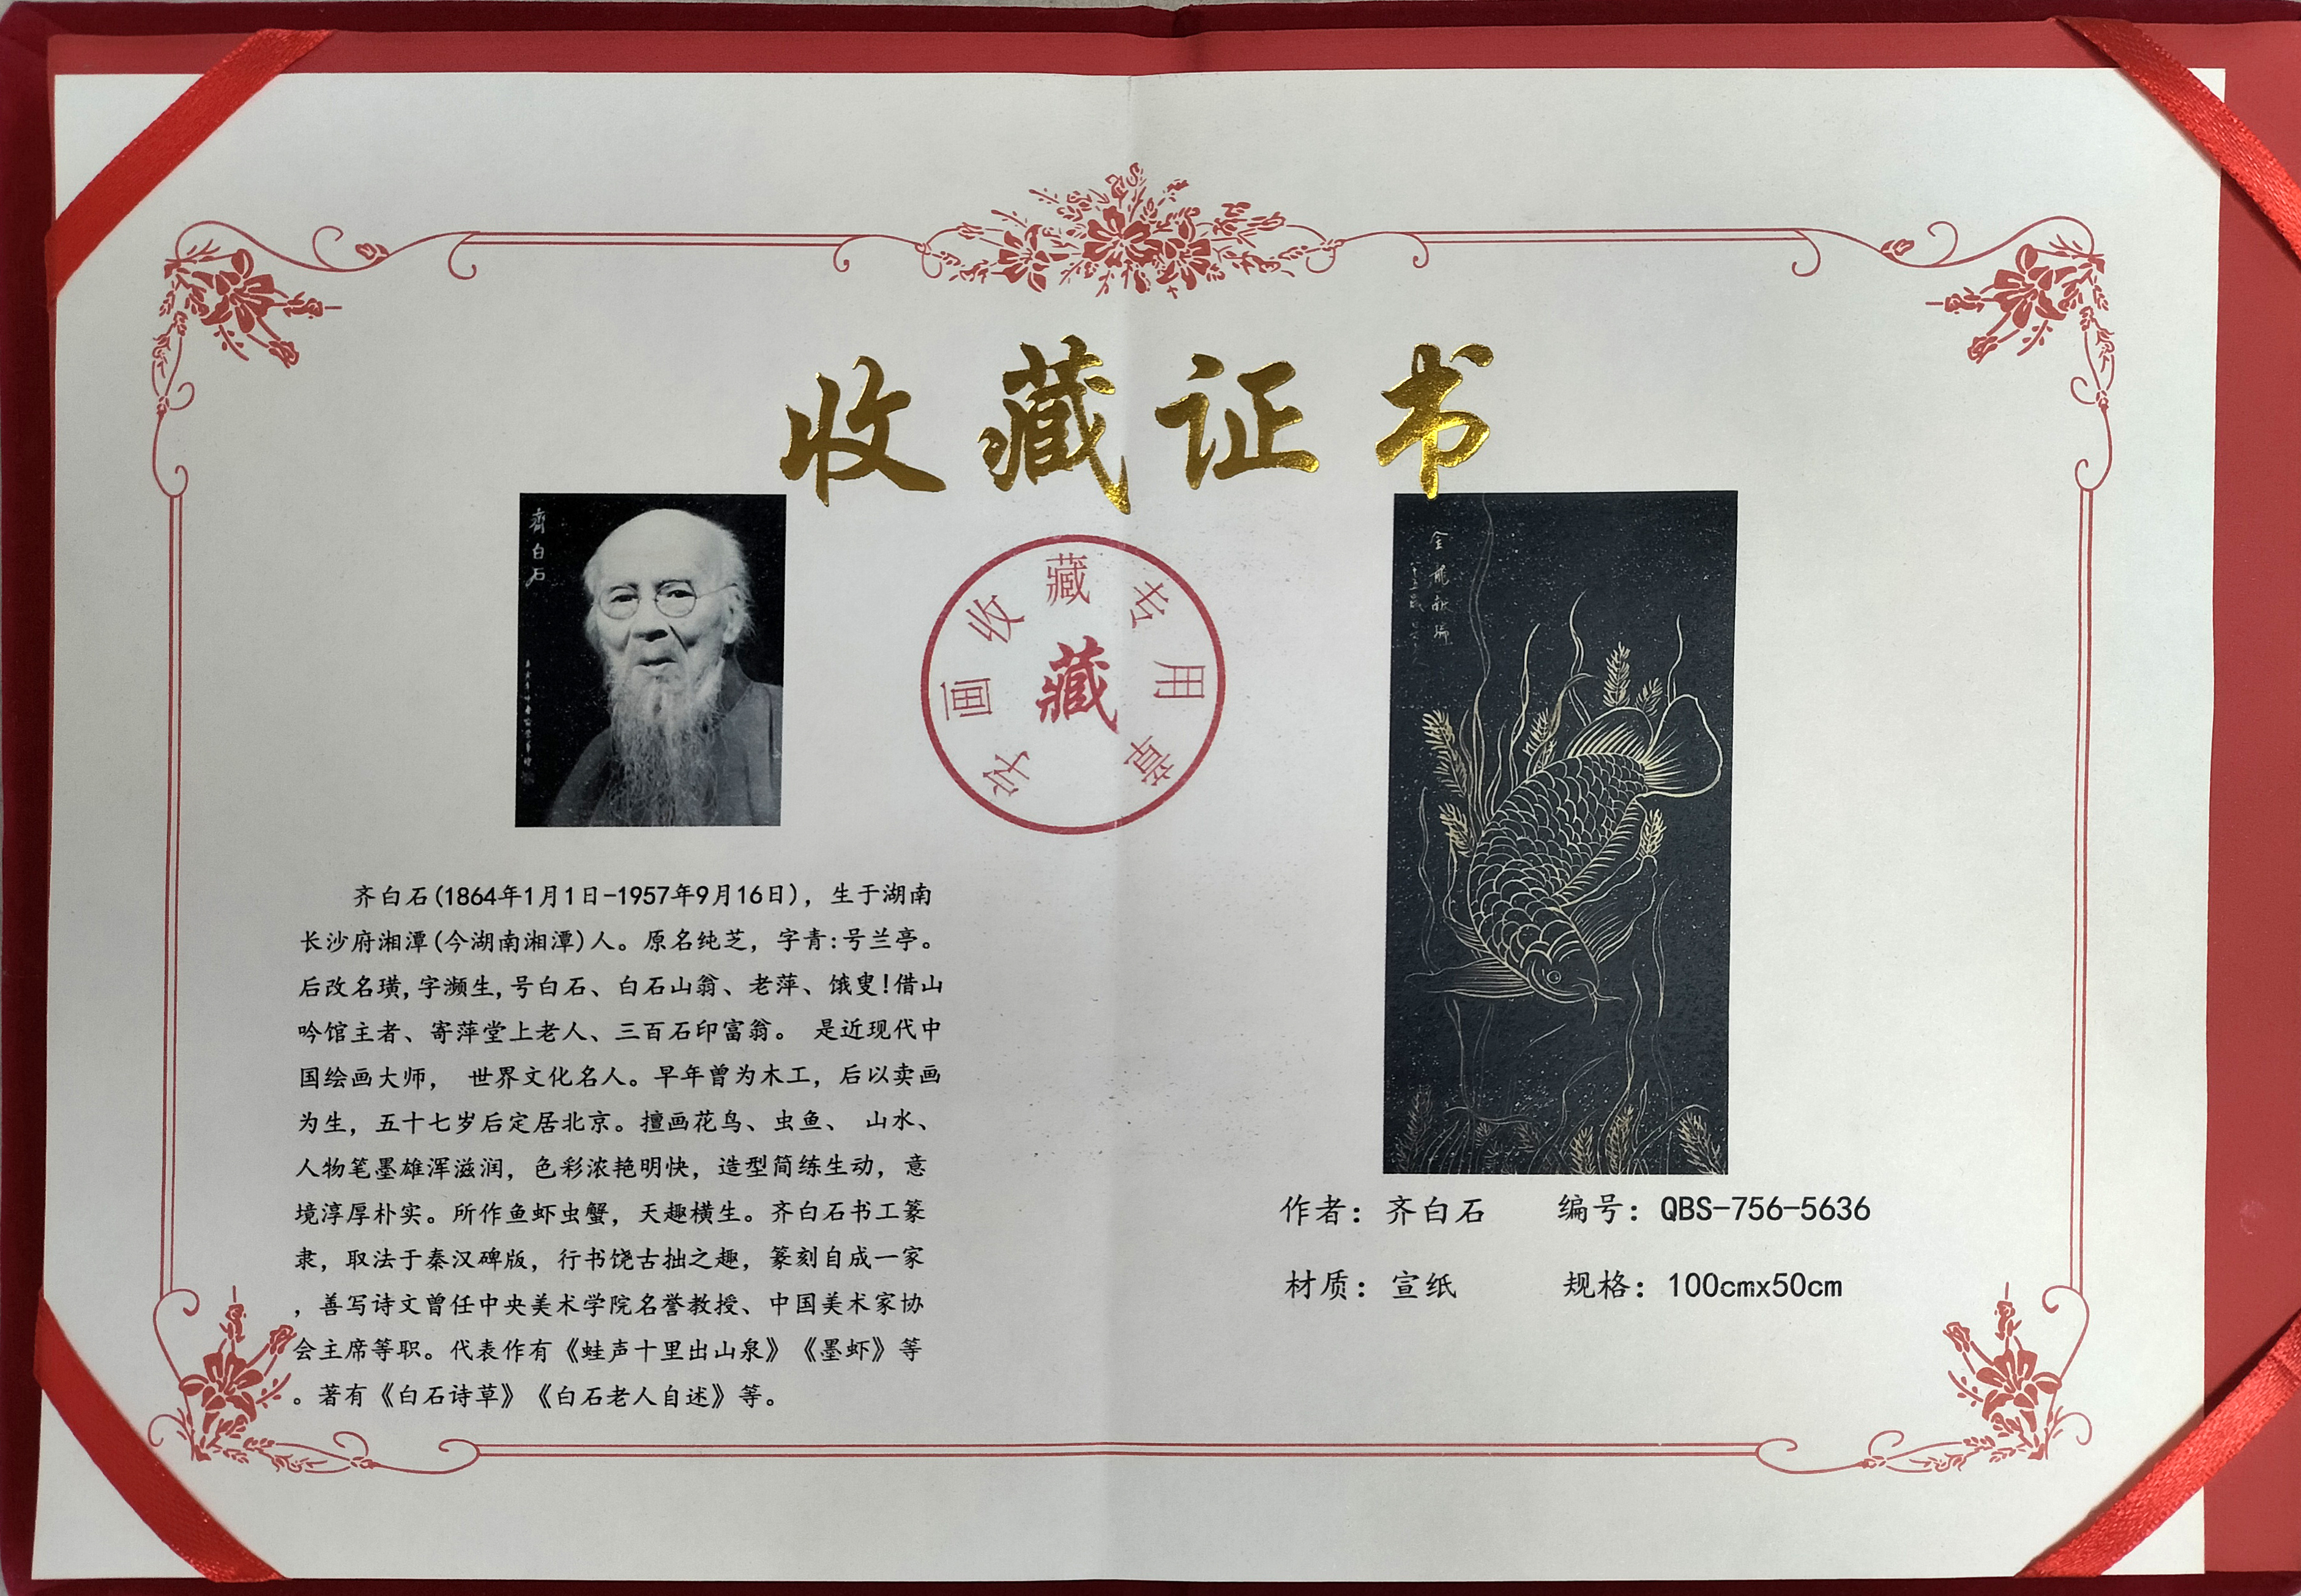 收藏证书
齊白石
字画收藏专用章
藏
齐白石(1864年1月1日-1957年9月16日)，生于湖南
长沙府湘潭(今湖南湘潭)人。原名纯芝，字青:号兰亭。
后改名璜,字濒生,号白石、白石山翁、老萍、饿叟!借山
吟馆主者、寄萍堂上老人、三百石印富翁。 是近现代中
国绘画大师， 世界文化名人。早年曾为木工，后以卖画
为生，五十七岁后定居北京。擅画花鸟、虫鱼、 山水、
人物笔墨雄浑滋润，色彩浓艳明快，造型简练生动，意
境淳厚朴实。所作鱼虾虫蟹，天趣横生。齐白石书工篆
隶，取法于秦汉碑版，行书饶古拙之趣，篆刻自成一家
，善写诗文曾任中央美术学院名誉教授、中国美术家协
会主席等职。代表作有《蛙声十里出山泉》《墨虾》等
。著有《白石诗草》《白石老人自述》等。
作者：齐白石 编号：QBS-756-5636
材质：宣纸 规格：100cmx50cm